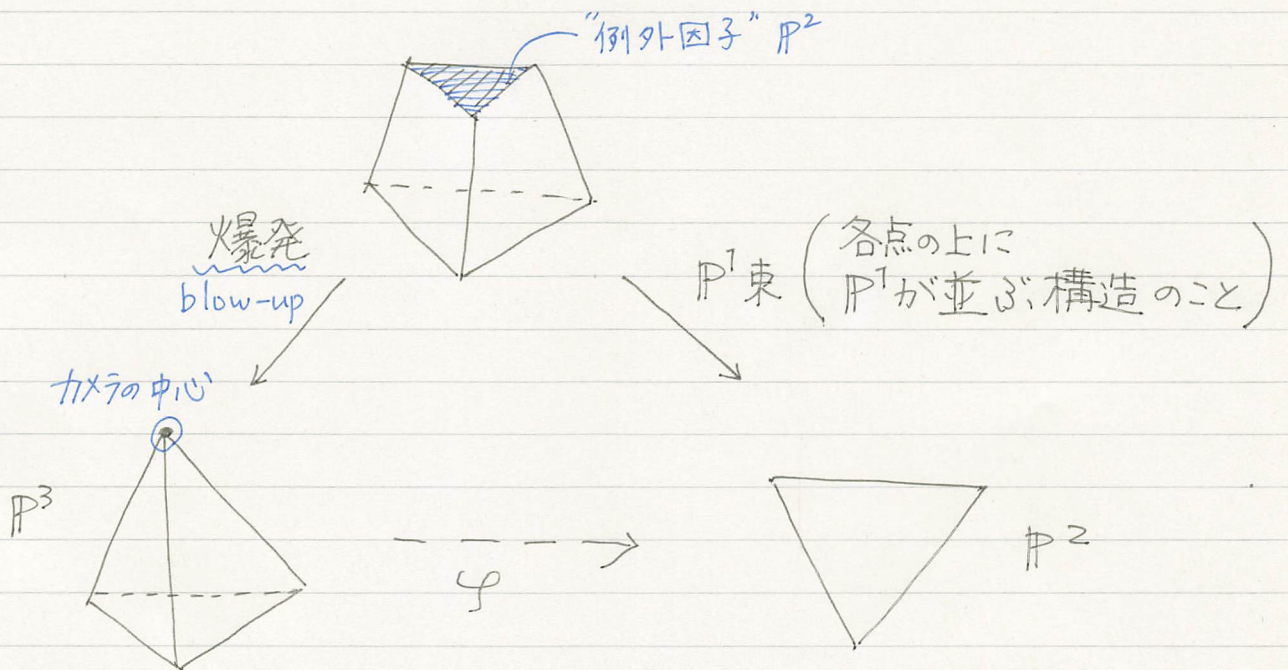 "例外因子" ℙ²
爆発
blow-up
ℙ¹束(各点の上に
ℙ¹が並ぶ構造のこと)
カメラの中心
ℙ³
φ
ℙ²